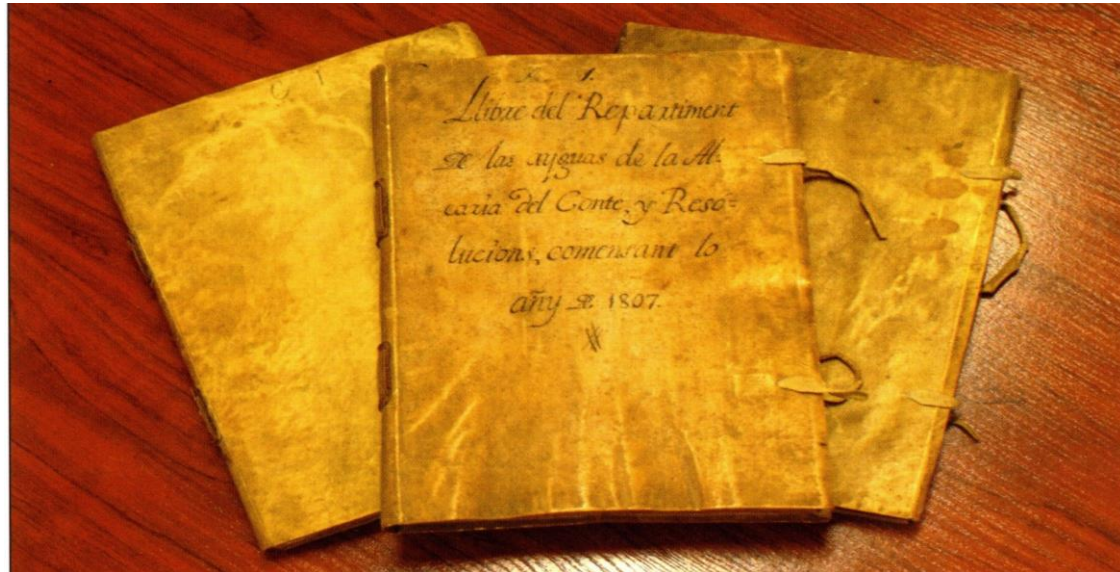 1.
Llibre del Repartiment
de las ayguas de la Al=
caria del Conte, y Reso=
lucions, comensant lo
añy de 1807.